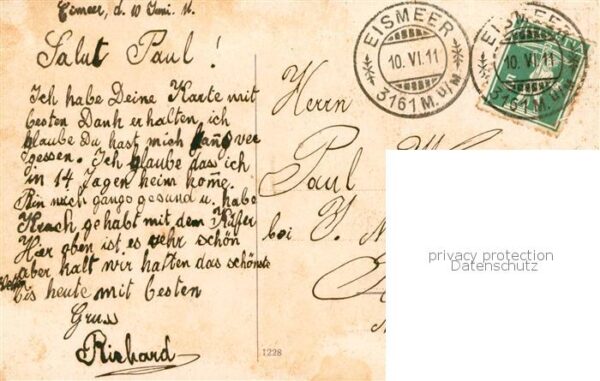 Eismeer, d. 10 Juni. 11.
Salut Paul!
Ich habe Deine Karte mit
besten Dank erhalten, ich
glaube Du hast mich ganz ver
gessen. Ich glaube dass ich
in 14 Tagen heim kome.
Bin noch gesund u. habe
Krach gehabt mit dem Käfer
Hier oben ist es sehr schön
aber kalt wir hatten das schönste
Wetter
bis heute mit besten
Gruss
Richard
1228
EISMEER
10. VI. 11
3161 M. ü/M.
EISMEER
10. VI. 11
3161 M. ü/M.
Herrn
Paul
bei J.
privacy protection
Datenschutz